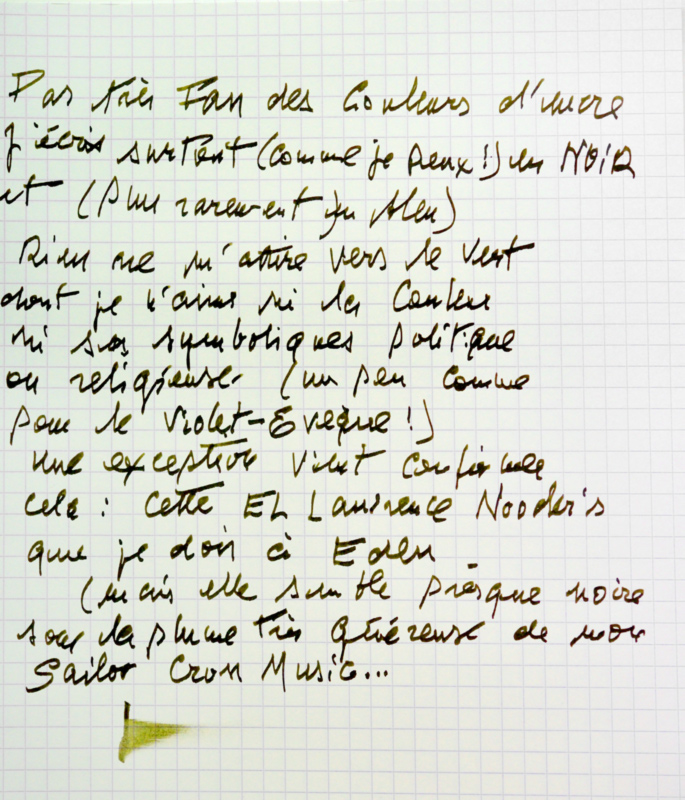 Pas très Fan des Couleurs d'encre
J'écris surtout (comme je peux !) en NOIR
et (Plus rarement) en bleu)
Rien ne m'attire vers le Vert
dont je n'aime ni la Couleur
ni ses symboliques politique
ou religieuse (un peu comme
pour le Violet-Evèque !)
une exception vient confirmer
cela : cette EL Lawrence Nooder's
que je dois à Eden
(mais elle semble presque noire
sous la plume Très généreuse de mon
Sailor Cross Music...